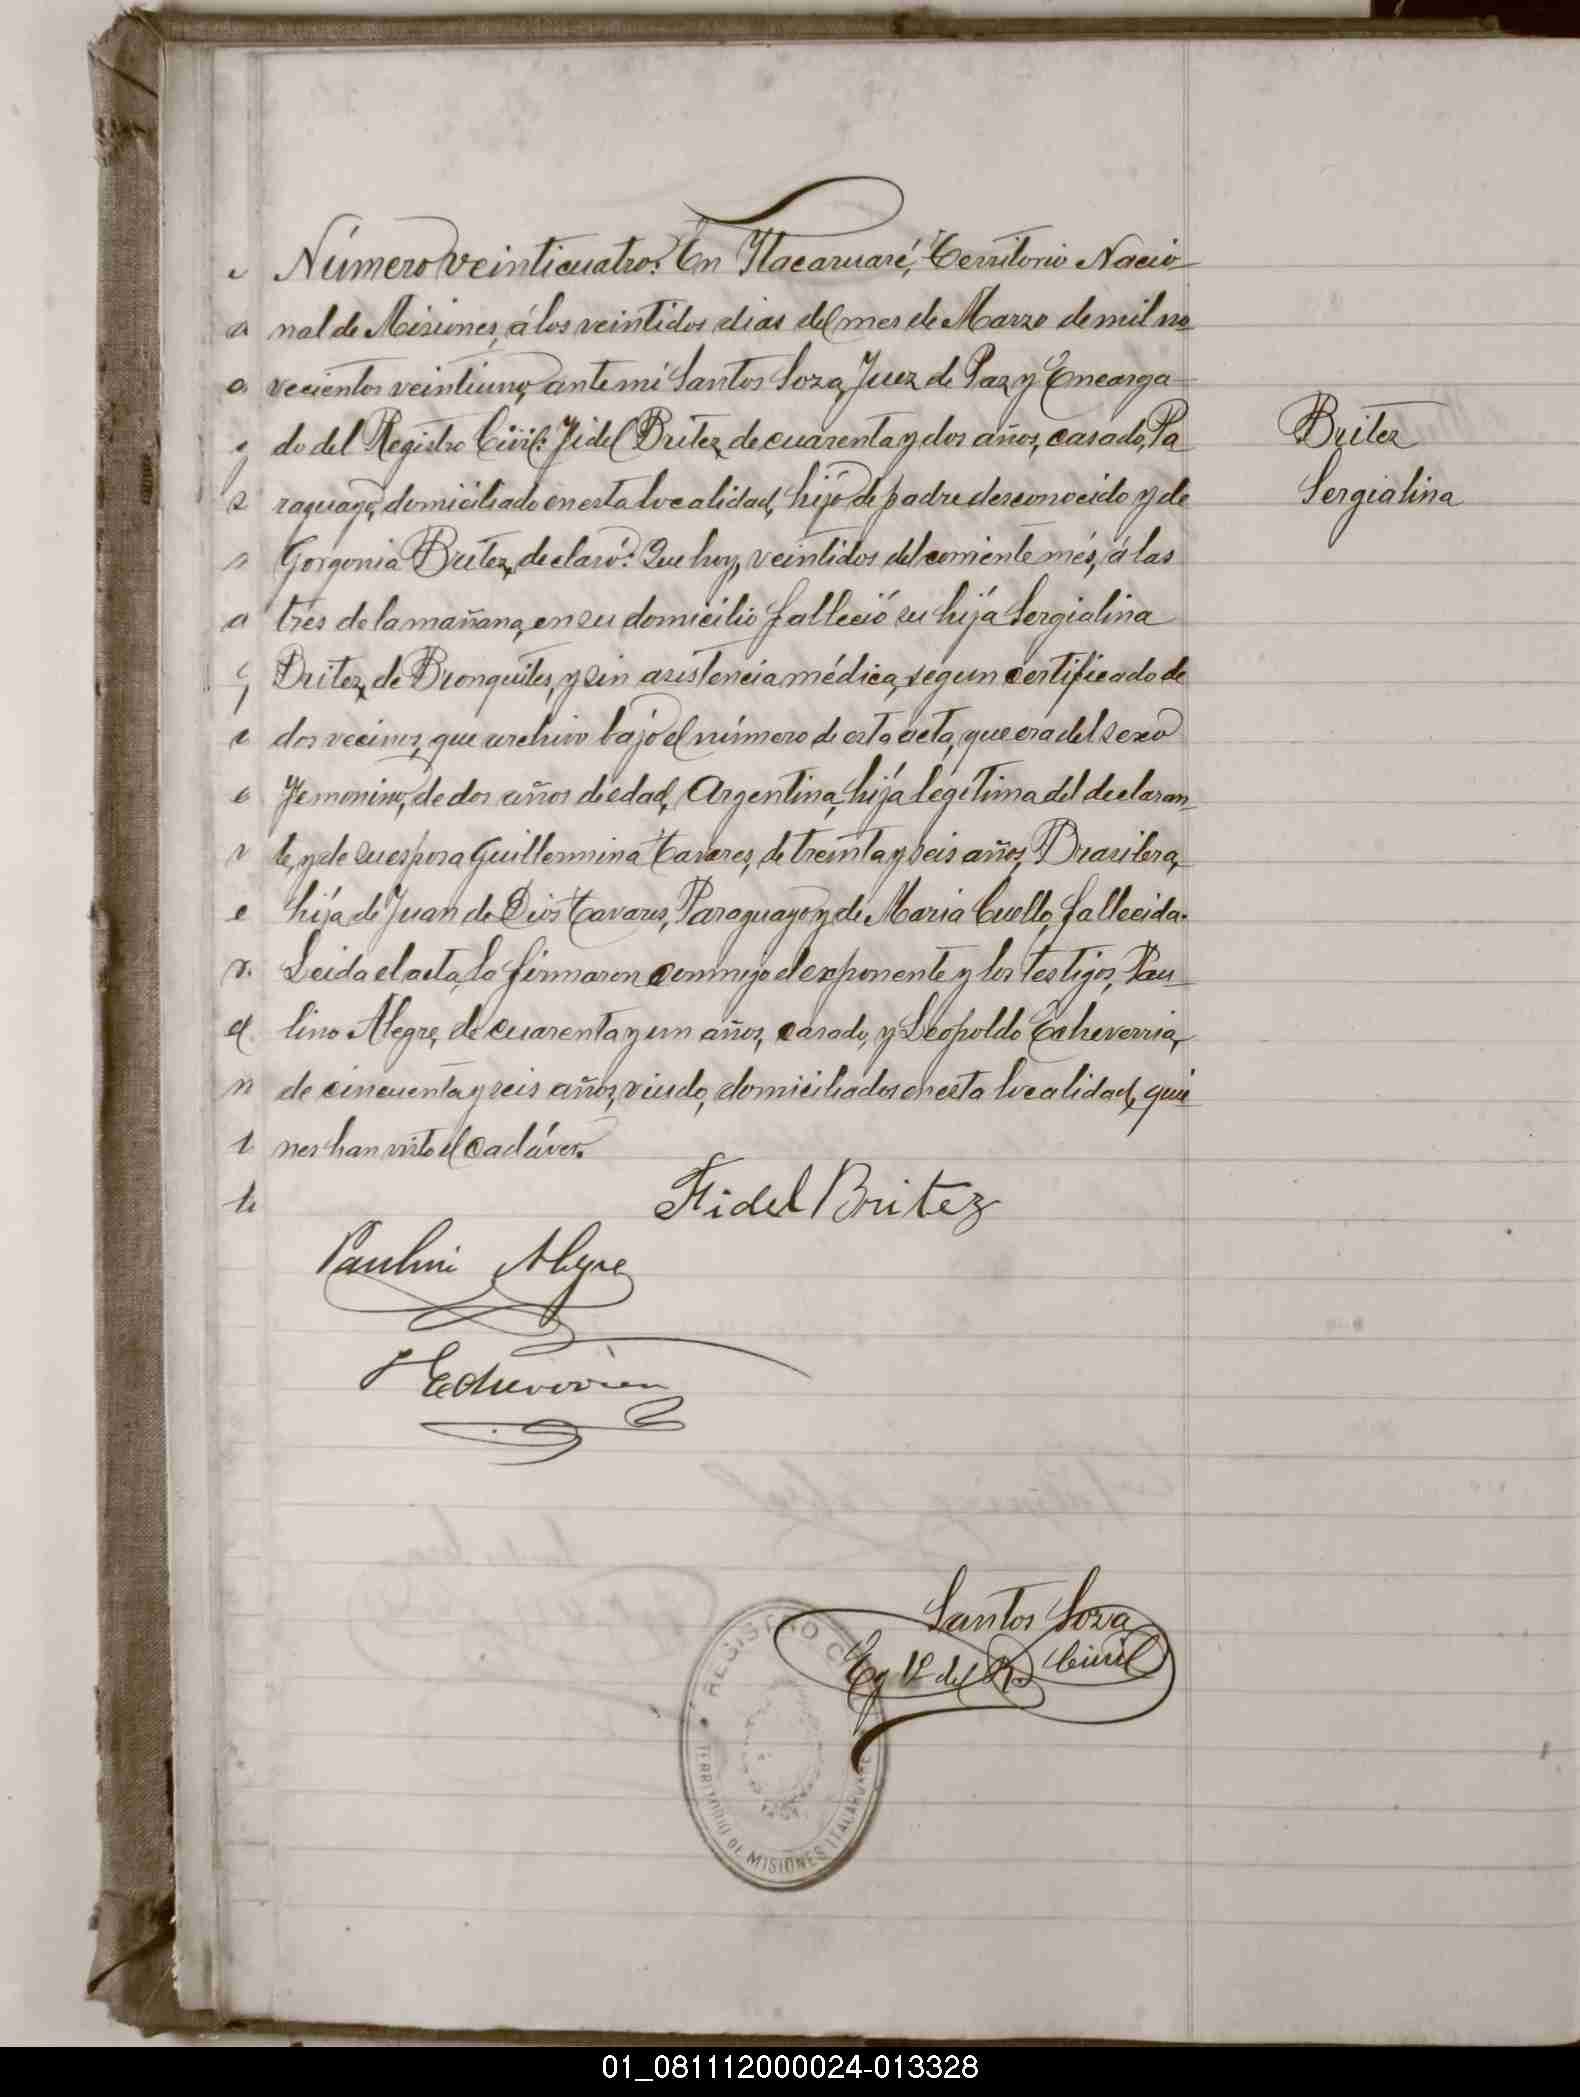 Número veinticuatro. En Itacaruaré, Territorio Nacio-
nal de Misiones, á los veintidos dias del mes de Marzo de mil no-
vecientos veintiuno, ante mi Santos Soza, Juez de Paz y Encarga-
do del Registro Civil: Fidel Britez, de cuarenta y dos años, casado, Pa
raguayo, domiciliado en esta localidad, hijo de padre desconocido y de
Gorgonia Britez, declaró: Que hoy, veintidos del corriente més, á las
tres de la mañana, en su domicilio falleció su hija Sergialina
Britez, de Bronquites, y sin asistencia médica, segun certificado de
dos vecinos, que archivo bajo el número de esta acta, que era del sexo
Femenino, de dos años de edad, Argentina, hija légitima del declaran-
te, y de su esposa Guillermina Tavares, de treinta y seis años, Brasilera,
hija de Juan de Dios Tavares, Paraguayo y de Maria Cuello, fallecida.
Leida el acta, la firmaron conmigo el exponente y los testigos, Pau-
lino Alegre, de cuarenta y un años, casado, y Leopoldo Echeverria,
de cincuenta y seis años, viudo, domiciliados en esta localidad, quie
nes han visto el cadáver.
Britez
Sergialina
Fidel Britez
Paulini Alegre
Echeverria
Santos Soza
Eg do del R. Civil
REGISTRO C
TERRITORIO DE MISIONES ITACARUARE
01_081112000024-013328